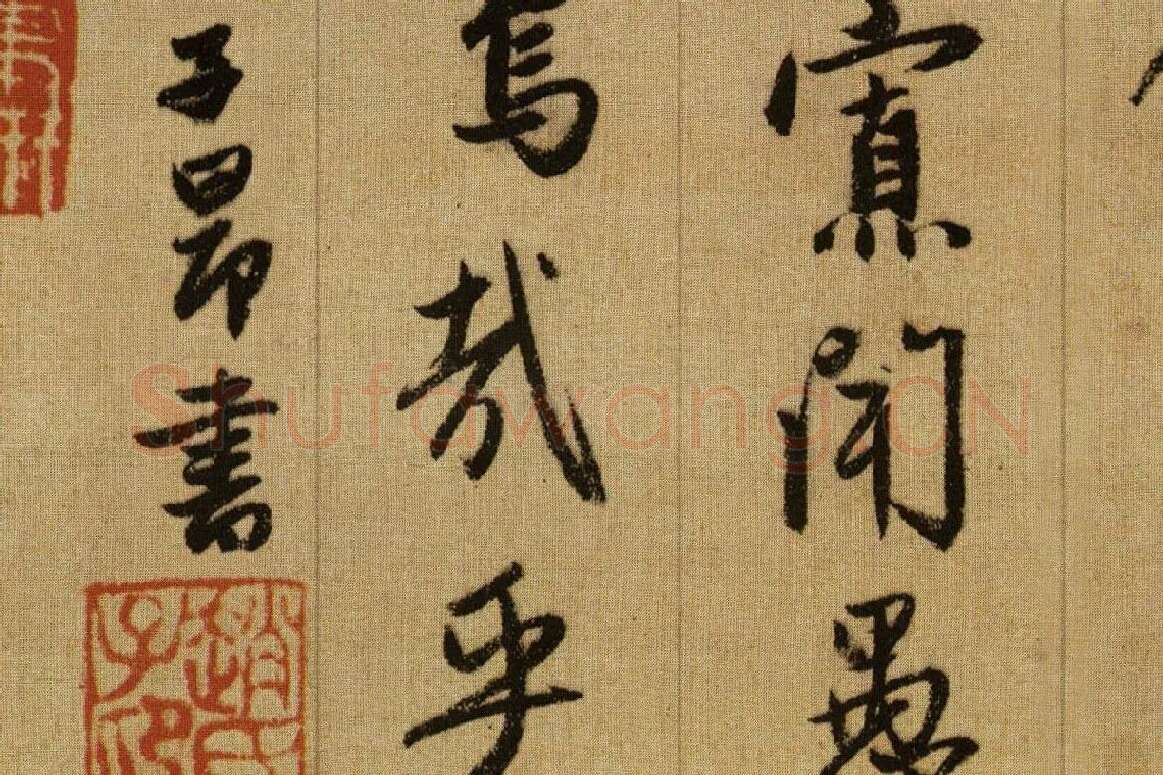 寡聞愚
焉哉乎
子昂書
趙氏子昂
Shufawang.CN